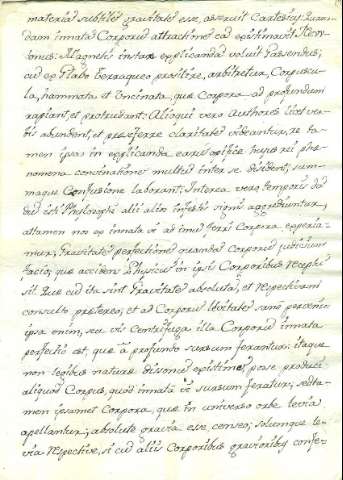 materiæ subtilis gravitate esse, asseruit Cartesius: Quan-
dam innata Corporis attractione ead existimavit New-
tonus: Magnetis instar explicanda voluit Gassendus;
cui ex Globo terraqueo prosilire, arbitretur, Corpuscu-
la, hammata et Uncinata, que Corpora ad profundum
rapiant, et protrudant: Alioqui vero Authores licet ver-
bis abundent, et præferre claritate videantur, re ta-
men ipsa in explicanda causa opifice hujus rei phe-
nomena convenatione multu inter se disident, sum-
maque Confusione laborant; Interea vero temporis dã
dui isti Philosophi alii alios infestis signis aggrediuntur,
attamen non ex innata vi ad ima ferri Corpora experia-
mur; Gravitate perfectione quanda Corporis judicium
facio; que accidens Physicus in ipsis Corporibus recepta
sit. Que cu ita sint Gravitate absoluta, et respectivam
consulto prætereo; et ad Corporis levitate sane percurro
ipsa enim, seu vis Centrifuga illa Corporis innata
perfectio est, qua à profundo sursum ferantur: itaque
non legibus naturæ dissonu existimo posse produci
aliquod Corpus, quod innatâ vi sursum feratur; sed ta-
men ipsamet Corpora, que in universo orbe levia
apellantur; absolute gravia esse censeo; solumque le-
via respective, si cu aliis Corporibus gravioribus confe-